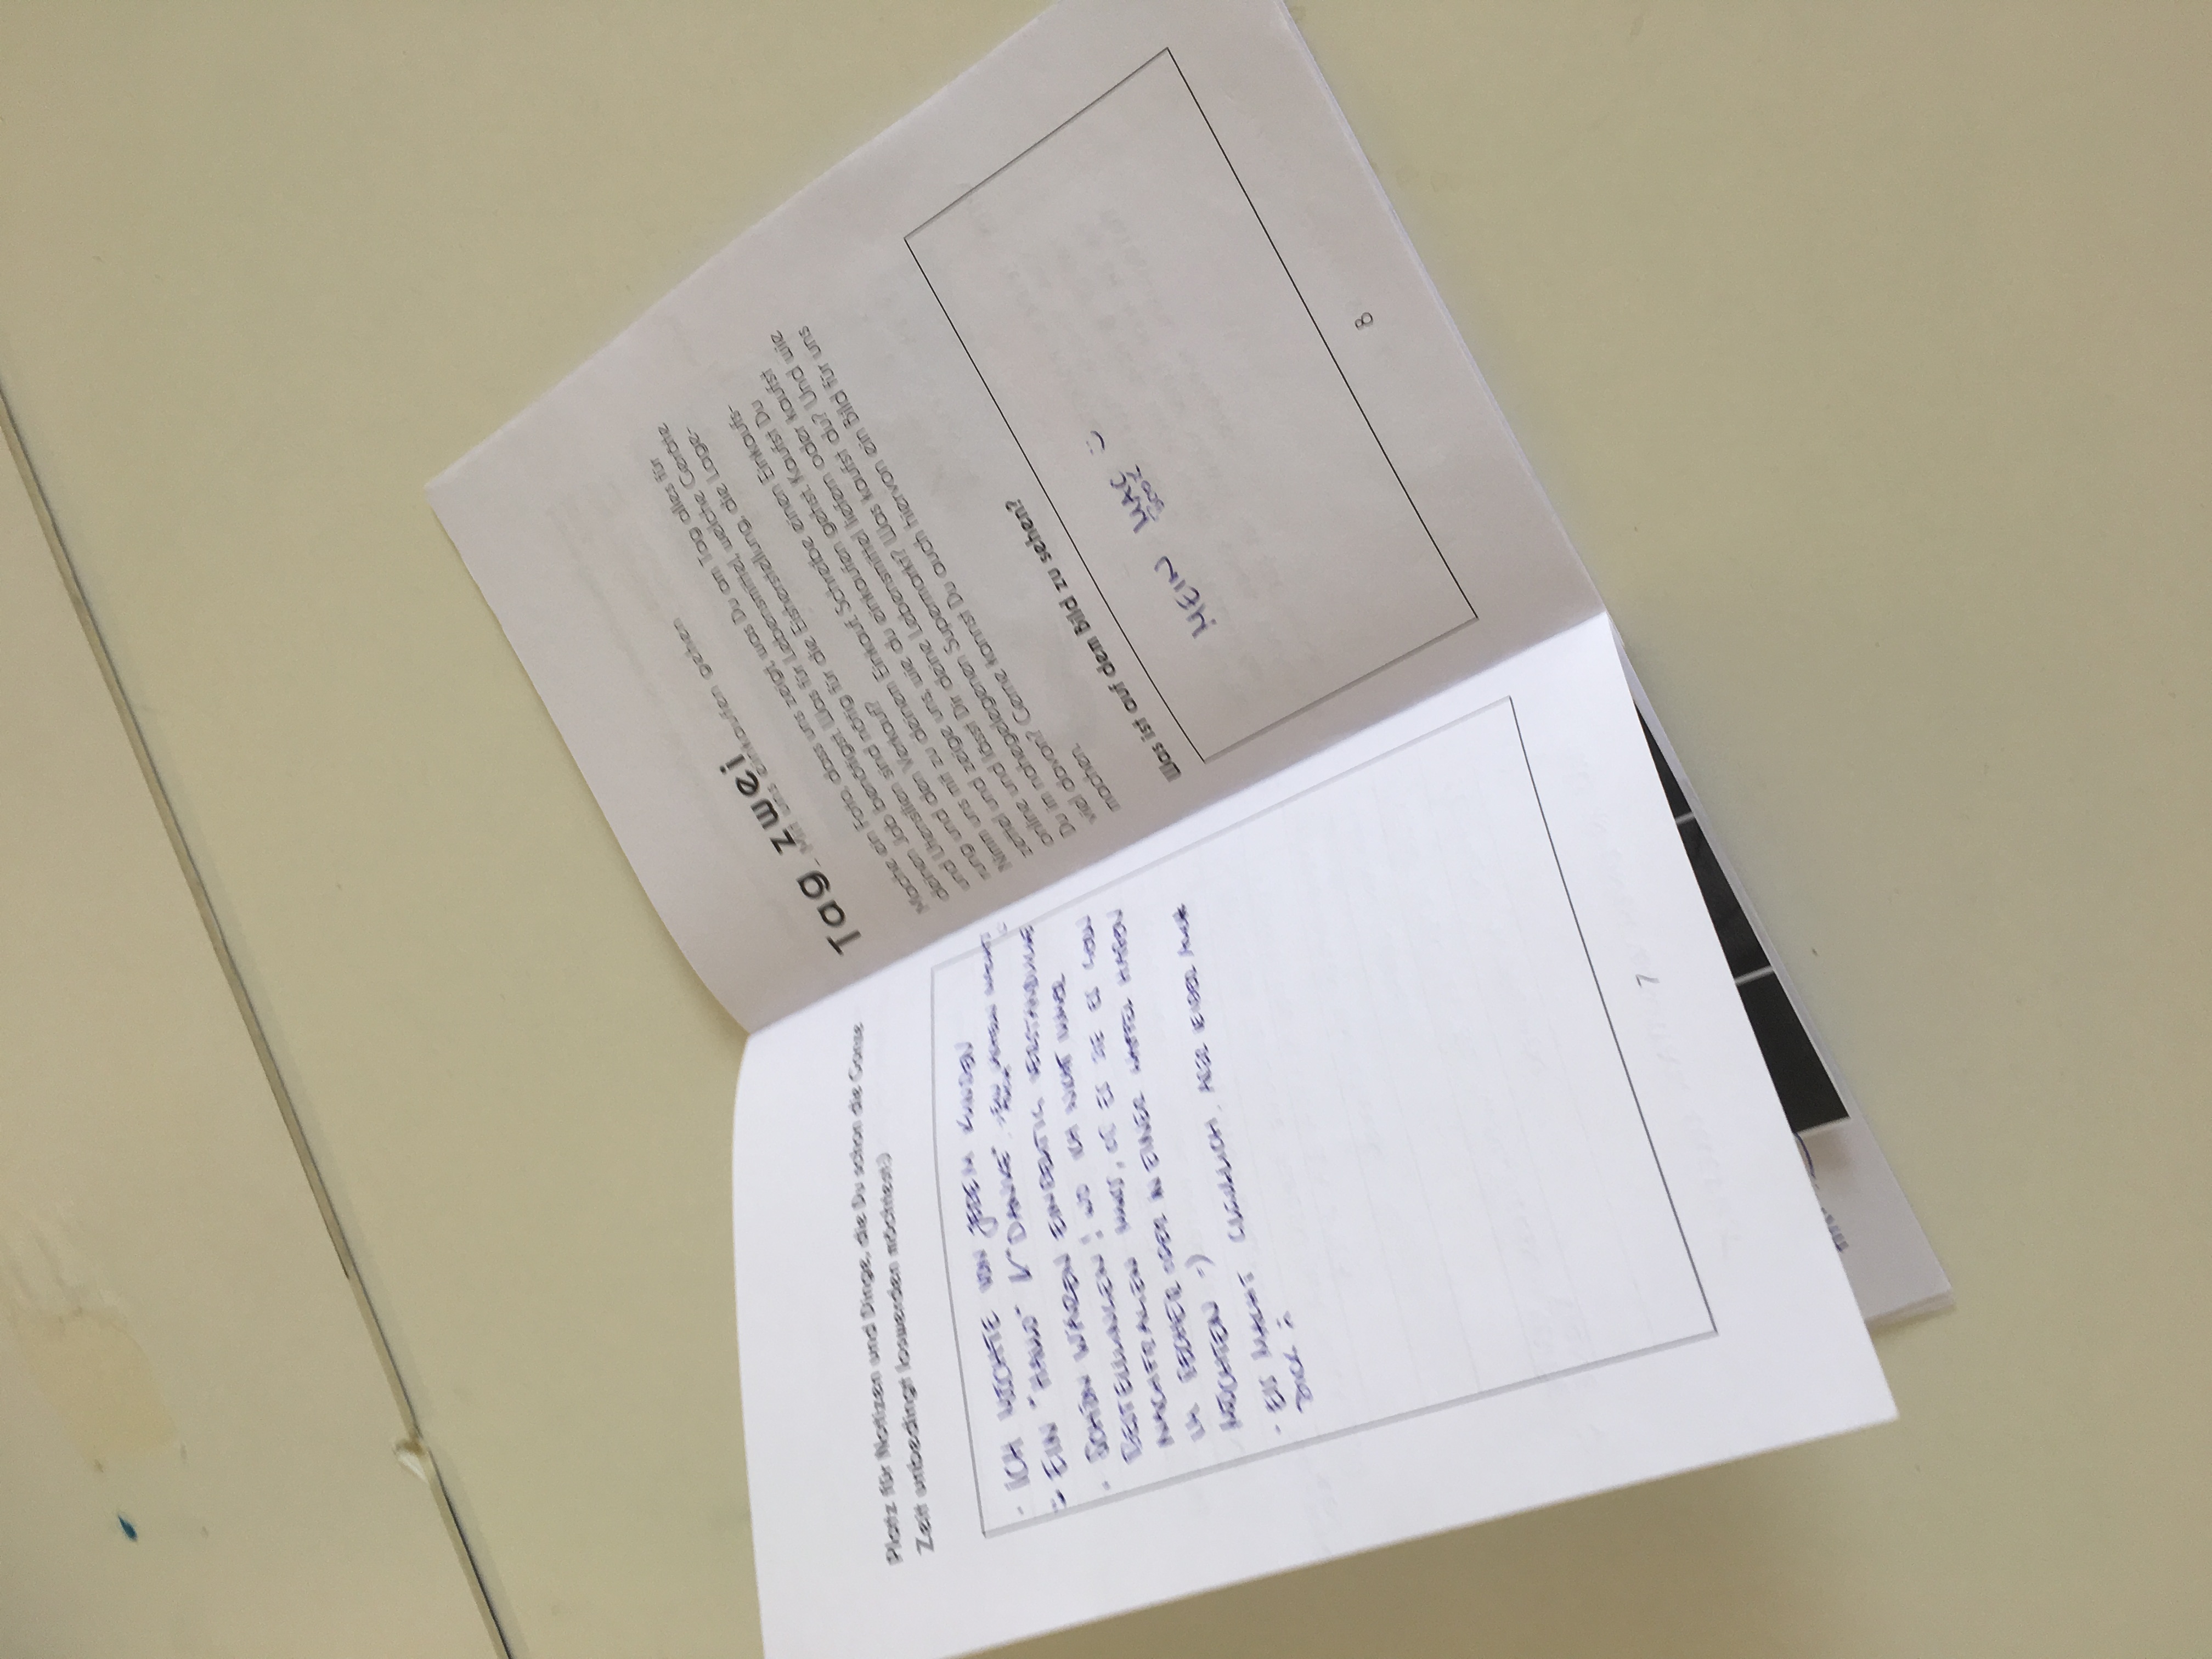 Platz für Notizen und Dinge, die Du schon die Ganze
Zeit unbedingt loswerden möchtest:)
- ICH MÖCHTE VON JEDEM KUNDEN
EIN "HALLO" & "DANKE".
- SCHÖN WÄREN EINDEUTIG VERSTÄNDLICHE
BESTELLUNGEN! WO ICH NICHT IMMER
NACHFRAGEN MUSS, OB ES SIE ES GERN
IM BECHER ODER IN EINER WAFFEL HABEN
MÖCHTEN =)
- EIS MACHT GLÜCKLICH, ABER LEIDER AUCH
DICK
7
Tag zwei
_Mit uns einkaufen gehen
Mache ein Foto, dass uns zeigt, was Du am Tag alles für
deinen Job benötigst. Was für Lebensmittel, welche Geräte
und Utensilien sind nötig für die Eisherstellung, die Lage-
rung und den Verkauf?
Nimm uns mit zu deinem Einkauf. Schreibe einen Einkaufs-
zettel und zeige uns, wie du einkaufen gehst. Kaufst Du
online und lässt Dir deine Lebensmittel liefern oder kaufst
Du im nahegelegenen Supermarkt? Was kaufst du? Und wie
viel davon? Gerne kannst Du auch hiervon ein Bild für uns
machen.
Was ist auf dem Bild zu sehen?
MEIN MAC
BOOK
8